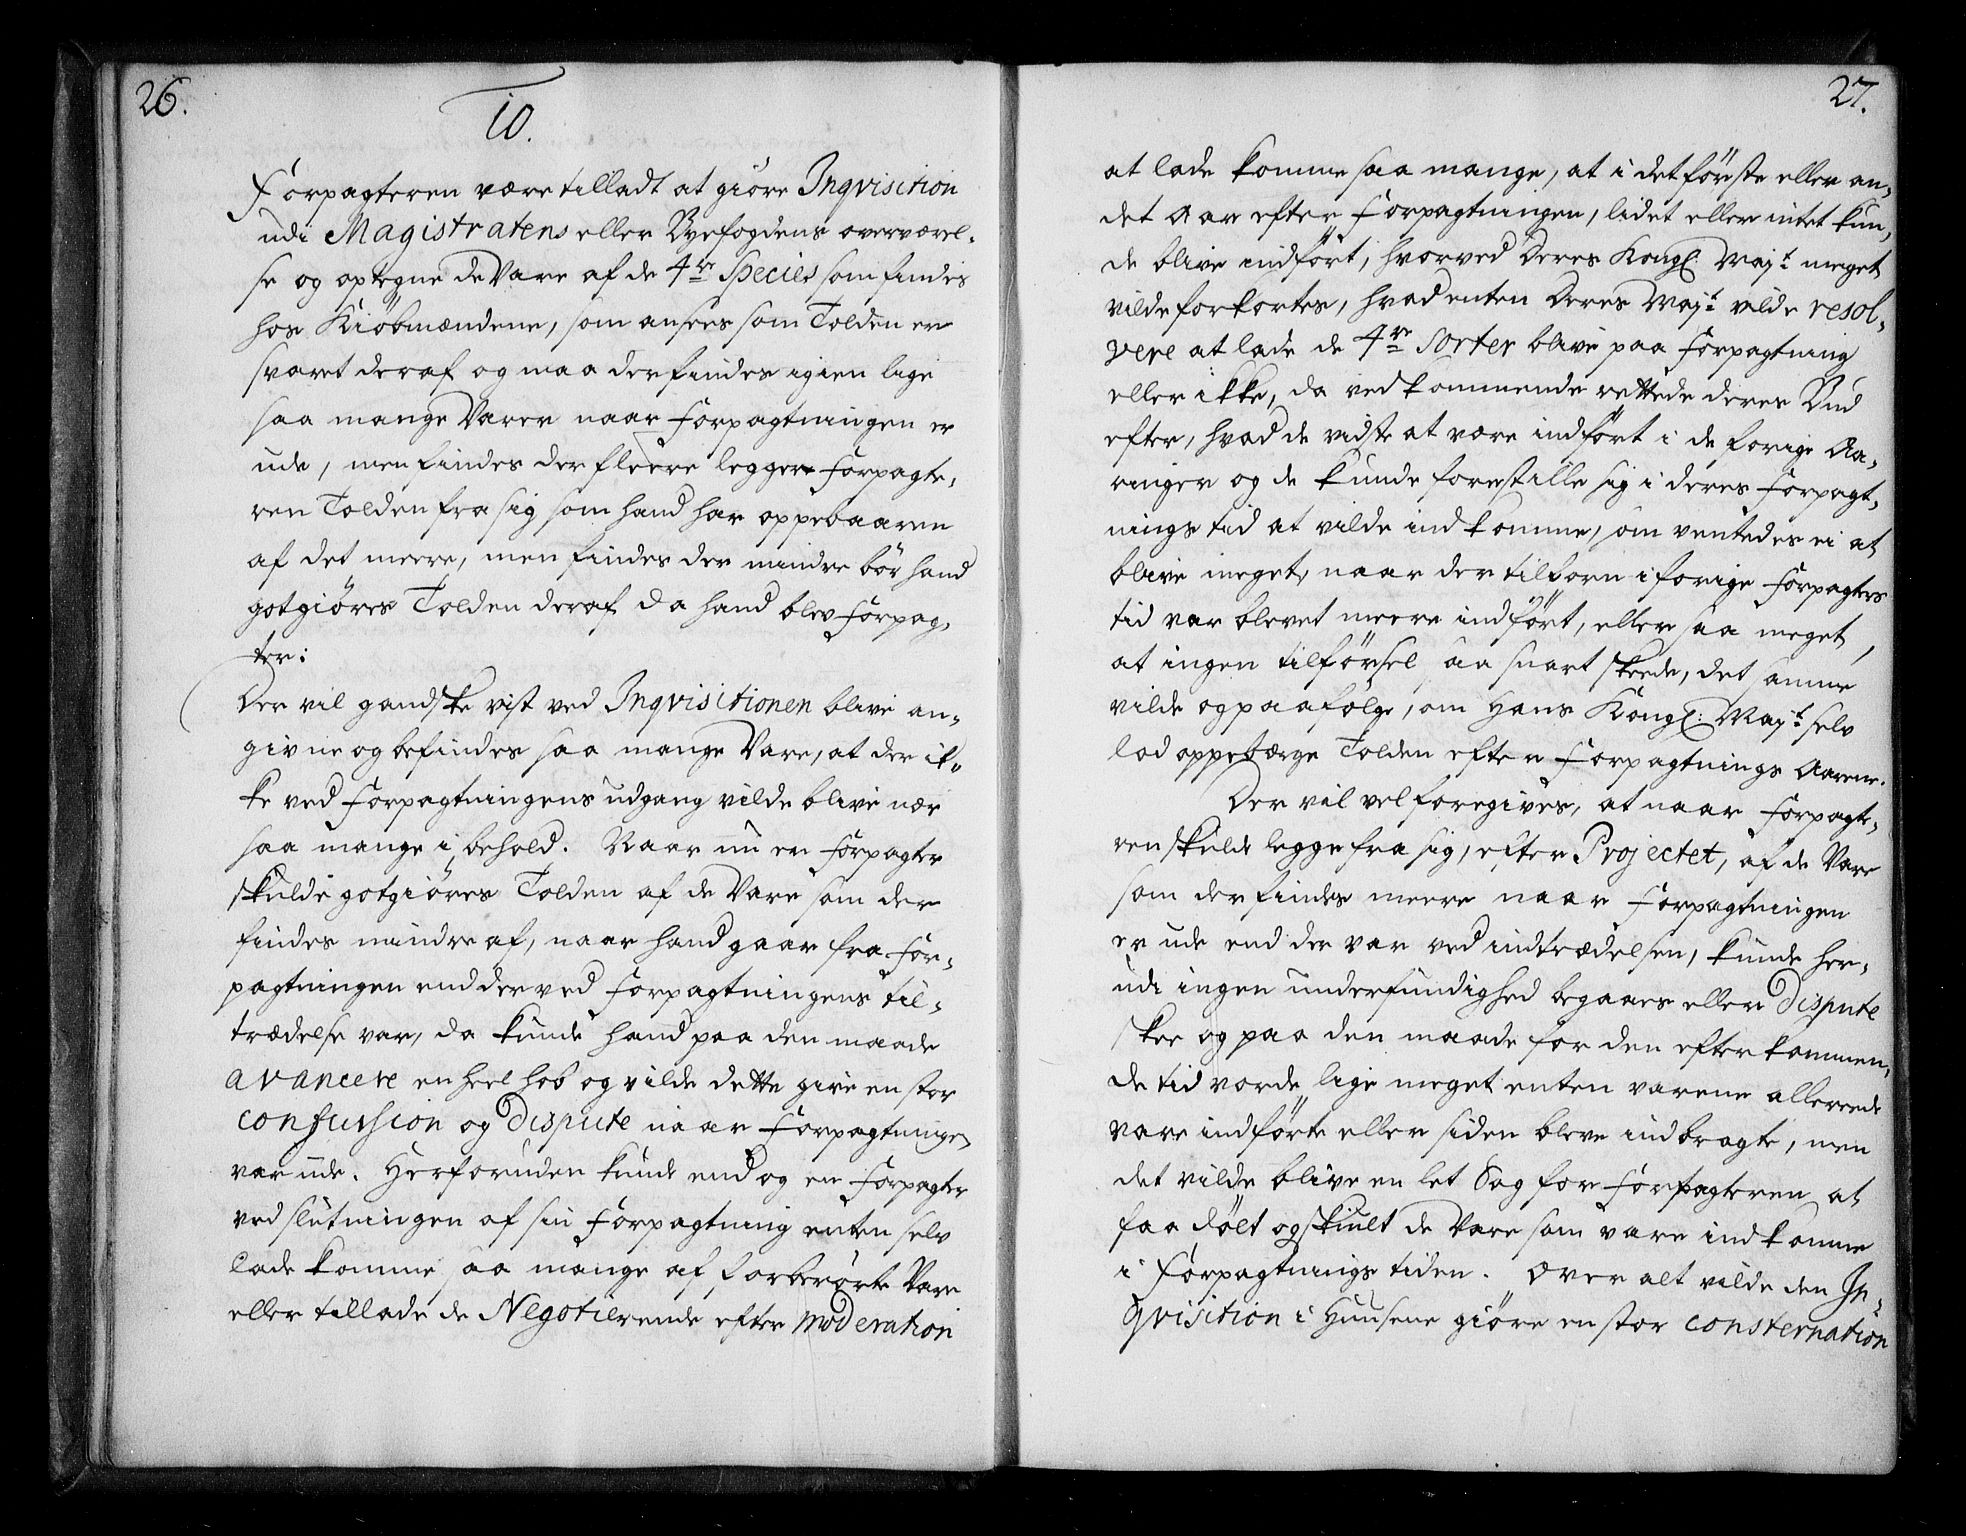 26.
10.
Forpagteren være tilladt at giöre Inqvisition
udi Magistratens eller Byefogdens overværel-
se og optegne de Vare af de 4re Species som findes
hos Kiöbmændene, som ansees som Tolden er
svaret deraf og maa der findes igien lige
saa mange Varer naar Forpagtningen er
ude, men findes der fleere legger Forpagte-
ren Tolden fra sig som hand har oppebaaren
af det meere, men findes der mindre bör hand
gotgiöres Tolden deraf da hand blev Forpag-
ter:
Der vil gandske vist ved Inqvisitionen blive an-
givne og befindes saa mange Vare, at der ik-
ke ved Forpagtningens udgang vilde blive nær
saa mange i behold. Naar nu en Forpagter
skulde gotgiöres Tolden af de Vare som der
findes mindre af, naar hand gaar fra For-
pagtningen end der ved Forpagtningens til-
trædelse var, da kunde hand paa den maade
avancere en heel hob og vilde dette give en stor
confussion og Dispute naar Forpagtninge,
var ude. Herforuden kunde end og en Forpagter
ved slutningen af sin Forpagtning enten selv
lade komme saa mange af forberörte Vare
eller tillade de Negotierende efter moderation
27.
at lade komme saa mange, at i det förste eller an-
det Aar efter Forpagtningen, lidet eller intet kun-
de blive indfört, hvorved Deres Kongl: Majt meget
vilde forkortes, hvad enten Deres Majt vilde resol-
vere at lade de 4re Sorter blive paa Forpagtning
eller ikke, da vedkommende rettede deres Bud
efter, hvad de vidste at være indfört i de forige Aa-
ringer og de kunde forestille sig i deres Forpagt-
nings tid at vilde indkomme, som ventedes ei at
blive meget, naar der tilforn i forige Forpagters
tid var blevet meere indfört, eller saa meget,
at ingen tilförsel saa snart skeede, det samme
vilde og paafølge, om Hans Kongl: Majt selv
lod oppebærge Tolden efter Forpagtnings Aarene.
Der vil vel foregives, at naar Forpagte-
ren skulde legge fra sig, efter Projectet, af de Vare
som der findes meere naar Forpagtningen
er ude end der var ved indtrædelsen, kunde her-
udi ingen underfundighed begaaes eller Dispute
skee og paa den maade for den efterkommen-
de tid vorde lige meget enten varene allereede
vare indförte eller siden bleve indbragte, men
det vilde blive en let Sag for Forpagteren at
faa dölt og skiult de Vare som vare indkomne
i Forpagtnings tiden. Over alt vilde den In-
qvisition i Huusene giöre en stor consternation